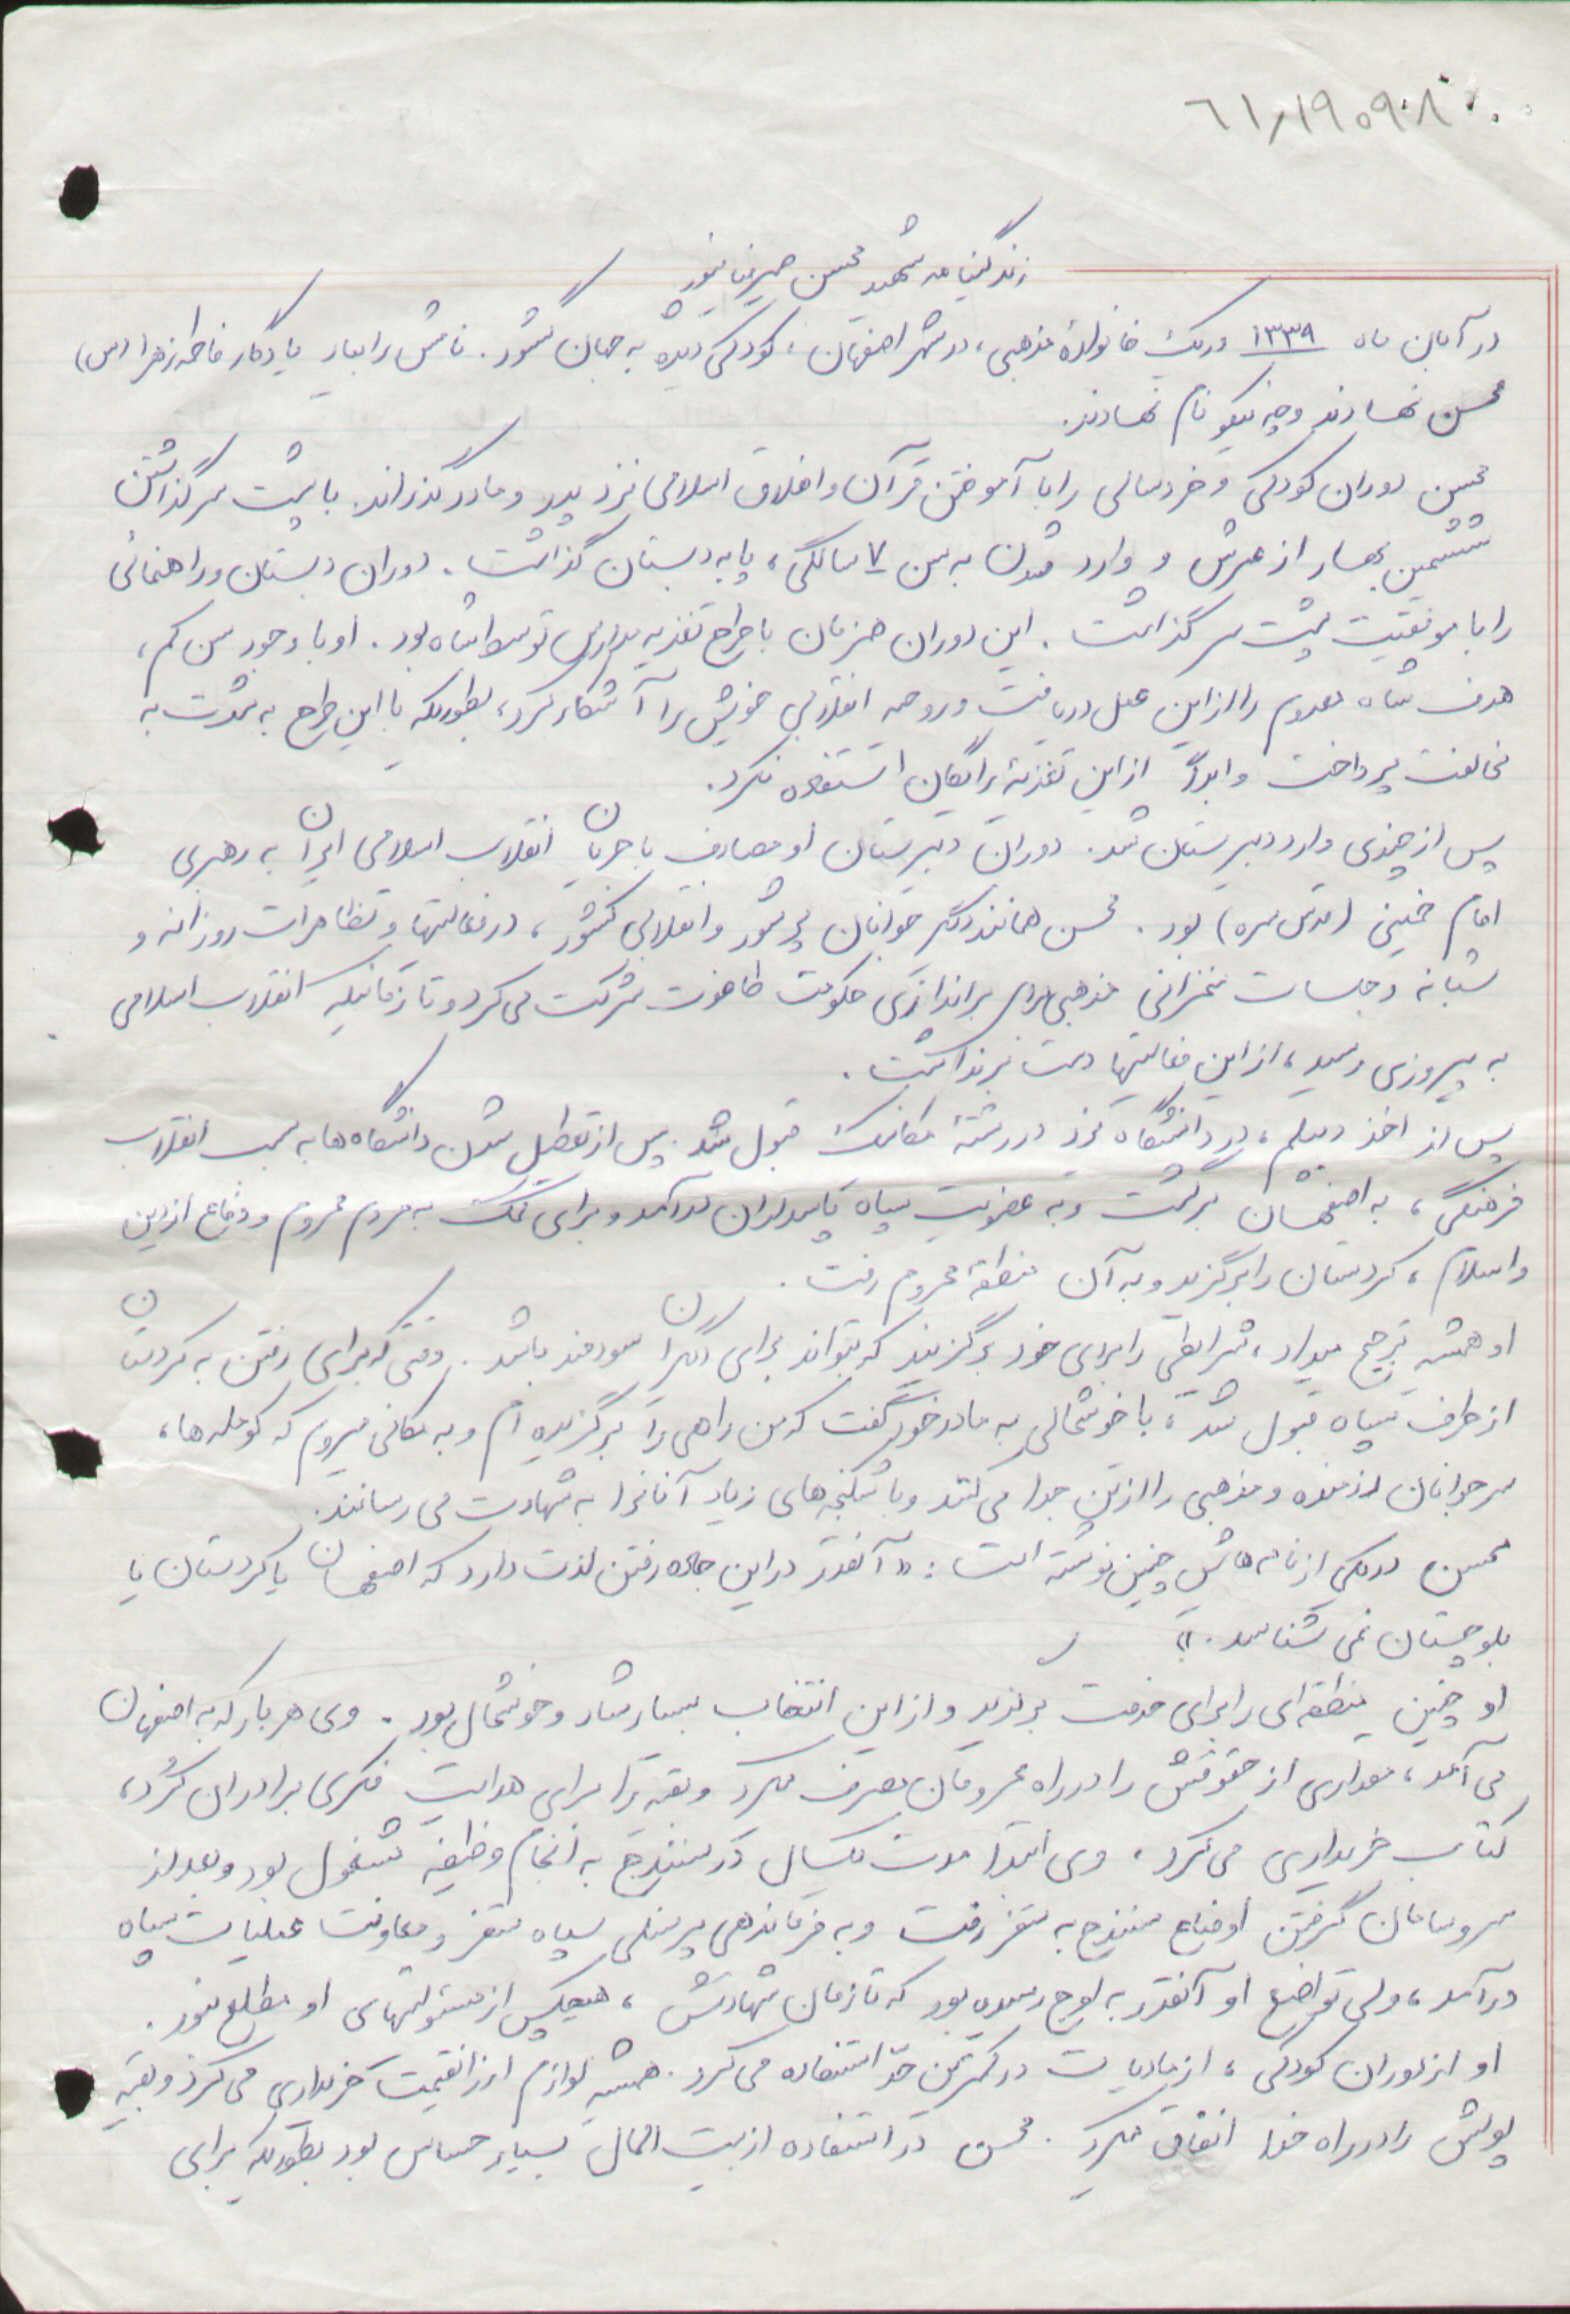 ٦١/١٩٠٩٠٨
زندگینامه شهید محسن
در آبان ماه ۱۳۳۹ در یک خانوادهٔ مذهبی، در شهر اصفهان، کودکی دیده به جهان گشود. نامش را بیاد یادگار فاطمه زهرا (س)
محسن نهادند و چه نیکو نام نهادند.
محسن دوران کودکی و خردسالی را با آموختن قرآن و اخلاق اسلامی نزد پدر و مادر گذراند. با پشت سر گذاشتن
ششمین بهار از عمرش و وارد شدن به سن ۷ سالگی، پا به دبستان گذاشت. دوران دبستان و راهنمائی
را با موفقیت پشت سر گذاشت. این دوران همزمان با طرح تغذیه مدارس توسط شاه بود. او با وجود سن کم،
هدف شاه معدوم را از این عمل دریافت و روحیه انقلابی خویش را آشکار کرد، بطوریکه با این طرح به شدت به
مخالفت پرداخت و ابداً از این تغذیهٔ رایگان استفاده نکرد.
پس از چندی وارد دبیرستان شد. دوران دبیرستان او مصادف با جریان انقلاب اسلامی ایران به رهبری
امام خمینی (قدس سره) بود. محسن همانند دیگر جوانان پرشور و انقلابی کشور، در فعالیتها و تظاهرات روزانه و
شبانه و جلسات سخنرانی مذهبی برای براندازی حکومت طاغوت شرکت می کرد و تا زمانیکه انقلاب اسلامی
به پیروزی رسید، از این فعالیتها دست برنداشت.
پس از اخذ دیپلم، در دانشگاه یزد در رشتهٔ مکانیک قبول شد. پس از تعطیل شدن دانشگاه ها به سبب انقلاب
فرهنگی، به اصفهان برگشت و به عضویت سپاه پاسداران درآمد و برای کمک به مردم محروم و دفاع از دین
و اسلام، کردستان را برگزید و به آن منطقهٔ محروم رفت.
او همیشه ترجیح میداد، شرایطی را برای خود برگزیند که بتواند برای دیگران سودمند باشد. وقتی که برای رفتن به کردستان
از طرف سپاه قبول شد، با خوشحالی به مادر خود گفت که من راهی را برگزیده ام و به مکانی میروم که کومله ها،
سر جوانان رزمنده و مذهبی را از تن جدا می کنند و با شکنجه های زیاد آنانرا به شهادت می رسانند.
محسن در یکی از نامه هایش چنین نوشته است: «آنقدر در این جاده رفتن لذت دارد که اصفهان یا کردستان یا
بلوچستان نمی شناسد.»
او چنین منطقه ای را برای خدمت برگزید و از این انتخاب بسیار شاد و خوشحال بود. وی هر بار که به اصفهان
می آمد، مقداری از حقوقش را در راه محرومان مصرف میکرد و بقیه را برای هدایت فکری برادران کُرد،
کتاب خریداری می کرد. وی ابتدا مدت یکسال در سنندج به انجام وظیفه مشغول بود و بعد از
سر و سامان گرفتن اوضاع سنندج به سقز رفت و به فرماندهی پرسنلی سپاه سقز و معاونت عملیات سپاه
درآمد، ولی تواضع او آنقدر به اوج رسیده بود که تا زمان شهادتش، هیچکس از مسئولیتهای او مطلع نبود.
او از دوران کودکی، از مادیات در کمترین حدّ استفاده می کرد. همیشه لوازم ارزانقیمت خریداری می کرد و بقیه
پولش را در راه خدا انفاق میکرد. محسن در استفاده از بیت المال بسیار حساس بود بطوریکه برای